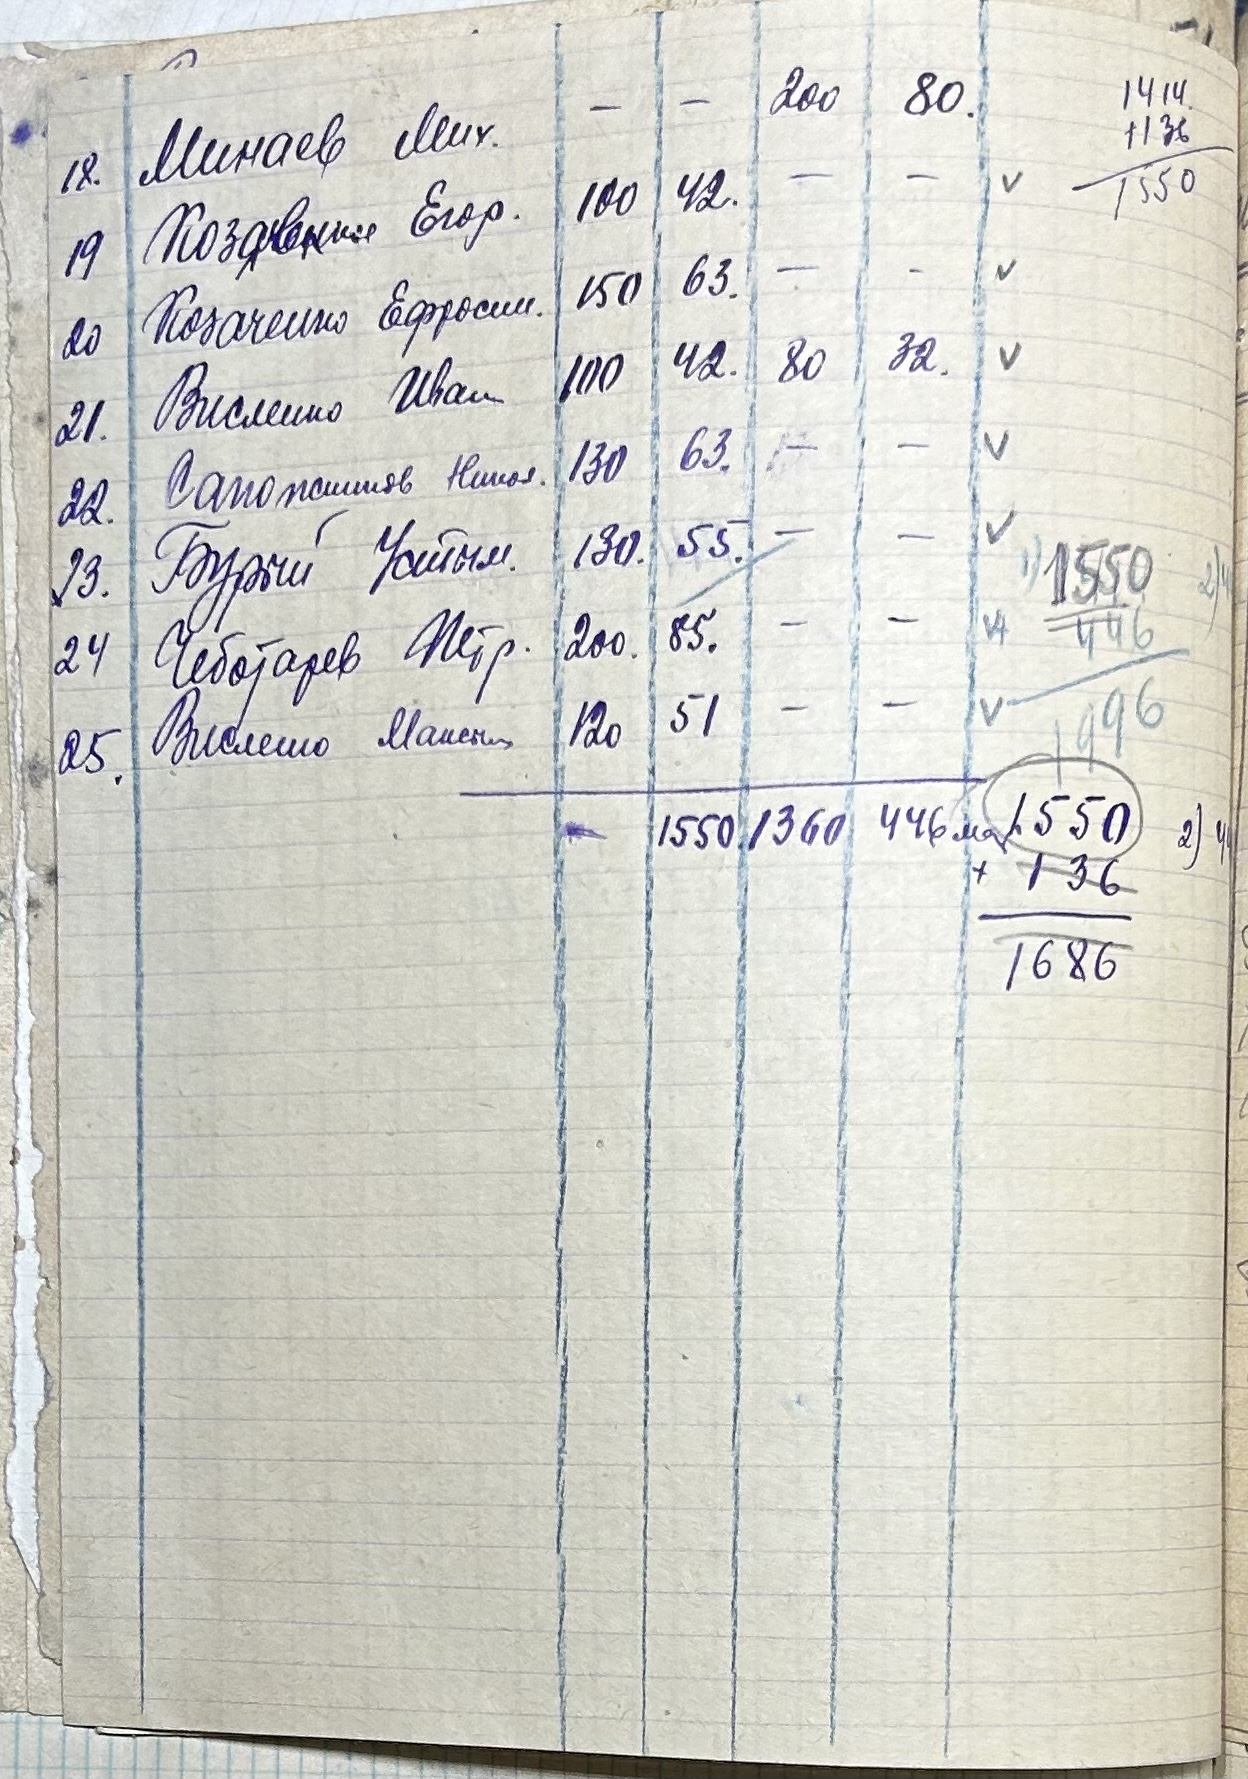 18. Минаев Мих. — — 200 80.
1414.
+136
1550
19 Егор. 100 42. — — v
20 Козаченко Ефросин. 150 63. — - v
21. Висленко Иван 100 42. 80 32. v
22. Сапожников Никол. 130 63. — — v
23. Бурый Устим. 130. 55. — — v
1) 1550
446
1996
24 Чеботарев Петр. 200. 85. — — v
25. Висленко Максим 120 51 — — v
1550 1360 446
1550
+ 136
1686
2)
2)